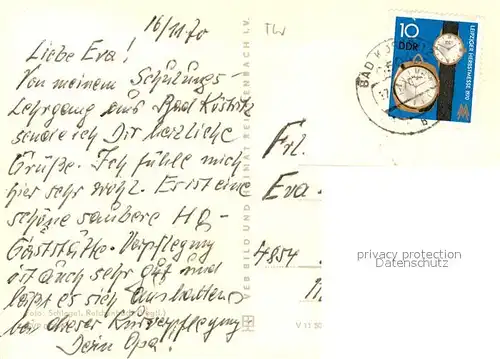 16/11 70
Liebe Eva!
Von meinem Schulungs-
Lehrgang aus Bad Köstritz
sende ich Dir herzliche
Grüße. Ich fühle mich
hier sehr wohl. Es ist eine
schöne saubere HO-
Gaststätte. Verpflegung
ist auch sehr gut und
läßt es sich aushalten
bei dieser
Dein Opa!
Foto: Schlegel, Reichenbach
VEB BILD UND HEIMAT REICHENBACH I. V.
V 11 50
TLV
10
DDR
LEIPZIGER HERBSTMESSE 1970
BAD KÖSTRITZ
b
Frl.
Eva
privacy protection
Datenschutz